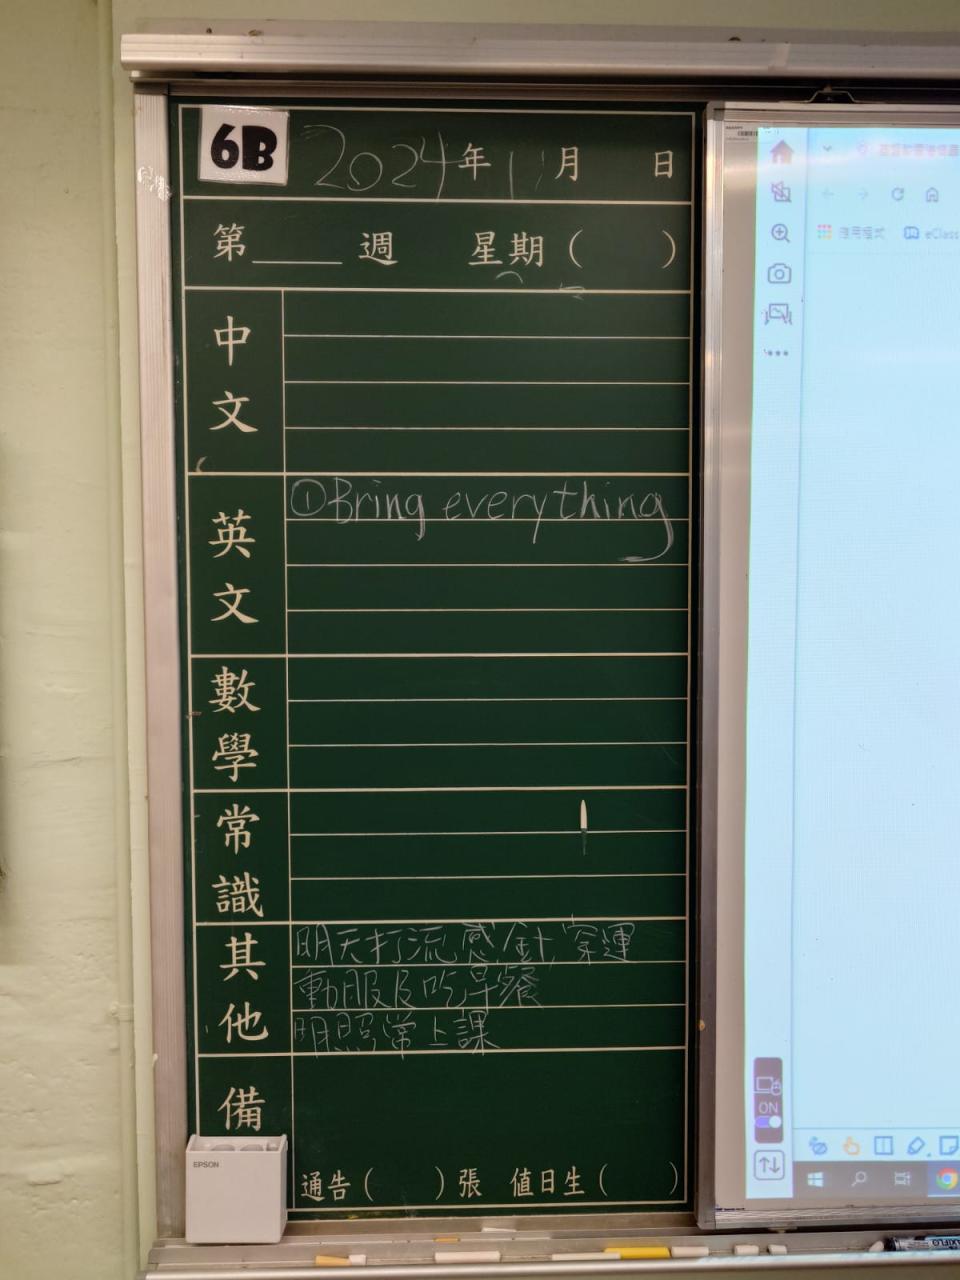 6B 2024年11月 日
第____週 星期( )
中文
英文
①Bring everything
數學
常識
其他
明天打流感針,穿運
動服及吃早餐
明照常上課
備
EPSON
通告( )張 值日生( )
應用程式 eClass
ON